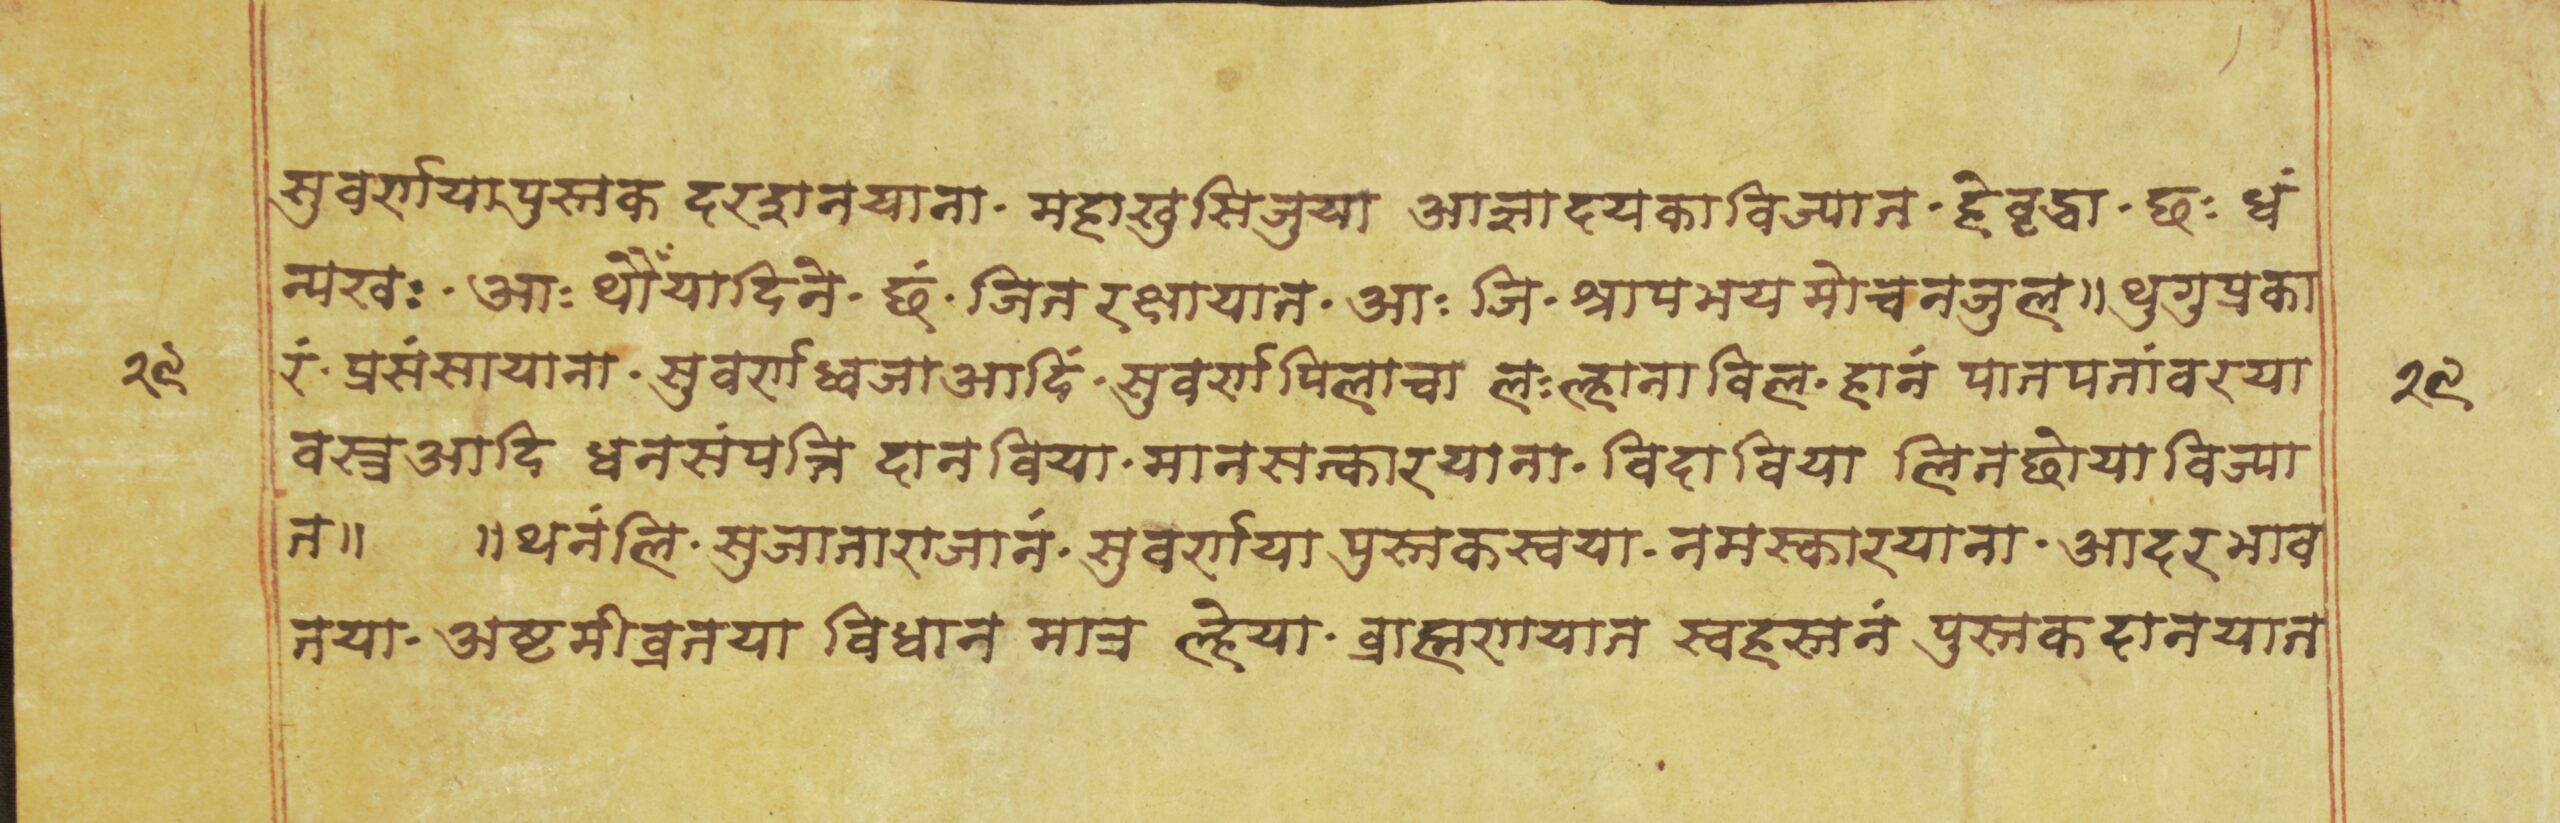 सुवर्णयापुस्तक दरशनयाना· महाखुसिजुया आज्ञादयकाविज्यात· हेवृद्धा· छः धं
न्यखः· आः थौंयादिने· छं· जित रक्षायात· आः जि· श्रापभय मोचनजुल॥ थुगुप्रका
२९ रं· प्रसंसायाना· सुवर्णध्वजाआदिं· सुवर्णपिलाचा लःल्हानाविल· हानं पातपतांवरया २९
वस्त्रआदि धनसंपत्ति दानविया· मानसत्कारयाना· विदाविया लितछोयाविज्या
त॥ ॥थनंलि· सुजाताराजानं· सुवर्णया पुस्तकस्वया· नमस्कारयाना· आदरभाव
तया· अष्टमीव्रतया विधान मात्र ल्हेया· व्राह्मणयात स्वहस्तनं पुस्तकदानयात